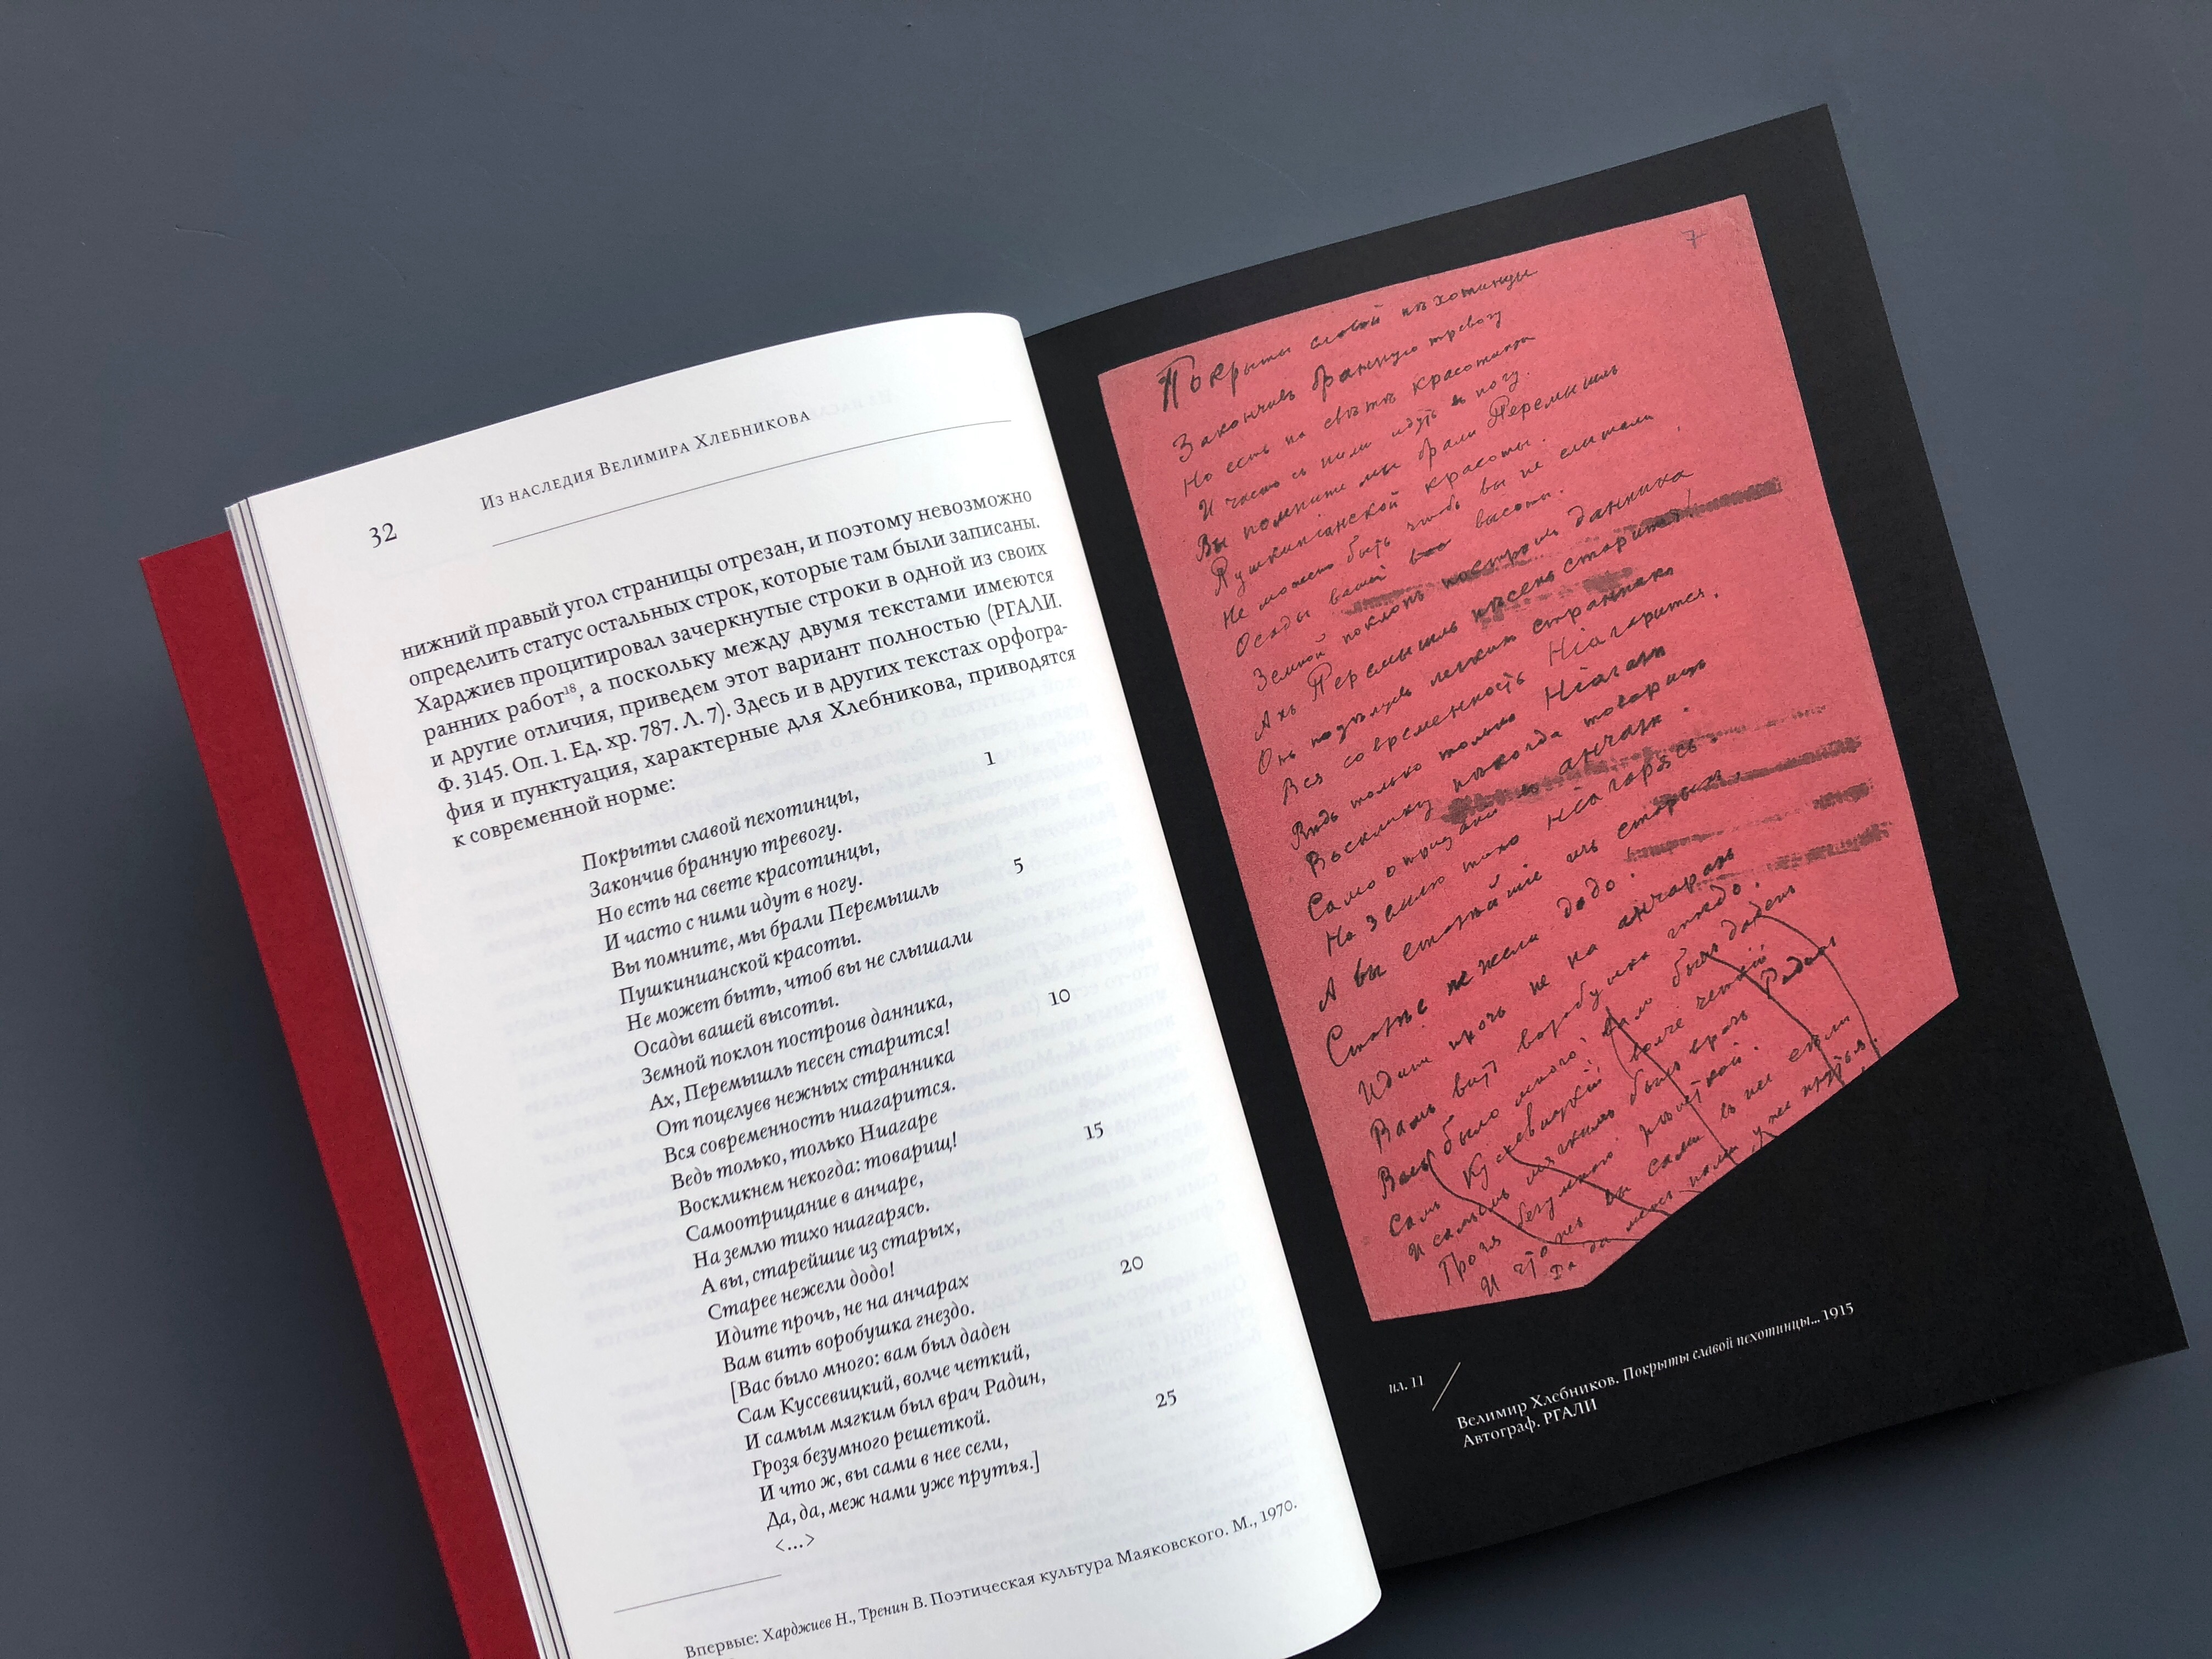 32
Из наследия Велимира Хлебникова
нижний правый угол страницы отрезан, и поэтому невозможно
определить статус остальных строк, которые там были записаны.
Харджиев процитировал зачеркнутые строки в одной из своих
ранних работ¹⁸, а поскольку между двумя текстами имеются
и другие отличия, приведем этот вариант полностью (РГАЛИ.
Ф. 3145. Оп. 1. Ед. хр. 787. Л. 7). Здесь и в других текстах орфогра-
фия и пунктуация, характерные для Хлебникова, приводятся
к современной норме:
Покрыты славой пехотинцы, 1
Закончив бранную тревогу.
Но есть на свете красотинцы,
И часто с ними идут в ногу.
Вы помните, мы брали Перемышль 5
Пушкинианской красоты.
Не может быть, чтоб вы не слышали
Осады вашей высоты.
Земной поклон построив данника,
Ах, Перемышль песен старится! 10
От поцелуев нежных странника
Вся современность ниагарится.
Ведь только, только Ниагаре
Воскликнем некогда: товарищ!
Самоотрицание в анчаре, 15
На землю тихо ниагарясь.
А вы, старейшие из старых,
Старее нежели додо!
Идите прочь, не на анчарах
Вам вить воробушка гнездо. 20
[Вас было много: вам был даден
Сам Куссевицкий, волче четкий,
И самым мягким был врач Радин,
Грозя безумного решеткой.
И что ж, вы сами в нее сели, 25
Да, да, меж нами уже прутья.]
<...>
Впервые: Харджиев Н., Тренин В. Поэтическая культура Маяковского. М., 1970.
7
Покрыты славой пѣхотинцы
Закончивъ бранную тревогу
Но есть на свѣтѣ красотинцы
И часто съ ними идутъ в ногу.
Вы помните мы брали Перемышль
Пушкинианской красоты.
Не можетъ быть чтобъ вы не слышали
Осады вашей высоты.
Земной поклонъ построивъ данника
Ахъ Перемышль пѣсенъ старится!
Онъ странникъ
Вся современность Ніагарится.
Вѣдь только только Ніагарѣ
Воскликну некогда товарищъ
Самоотрицание в анчарѣ.
На землю тихо ніагарясь.
А вы старѣйшіе изъ старыхъ.
Старѣе нежели додо.
Идите прочь не на анчарахъ
Вамъ вить воробушка гнѣздо.
Васъ было много, вамъ былъ даденъ
Самъ Кусевицкій волче четкій
И самымъ мягкимъ былъ врачъ Радин
Грозя безумного рѣшеткой.
И что жъ вы сами въ нее сели
Да да межъ нами уже прутья.
ил. 11
Велимир Хлебников. Покрыты славой пехотинцы... 1915
Автограф. РГАЛИ